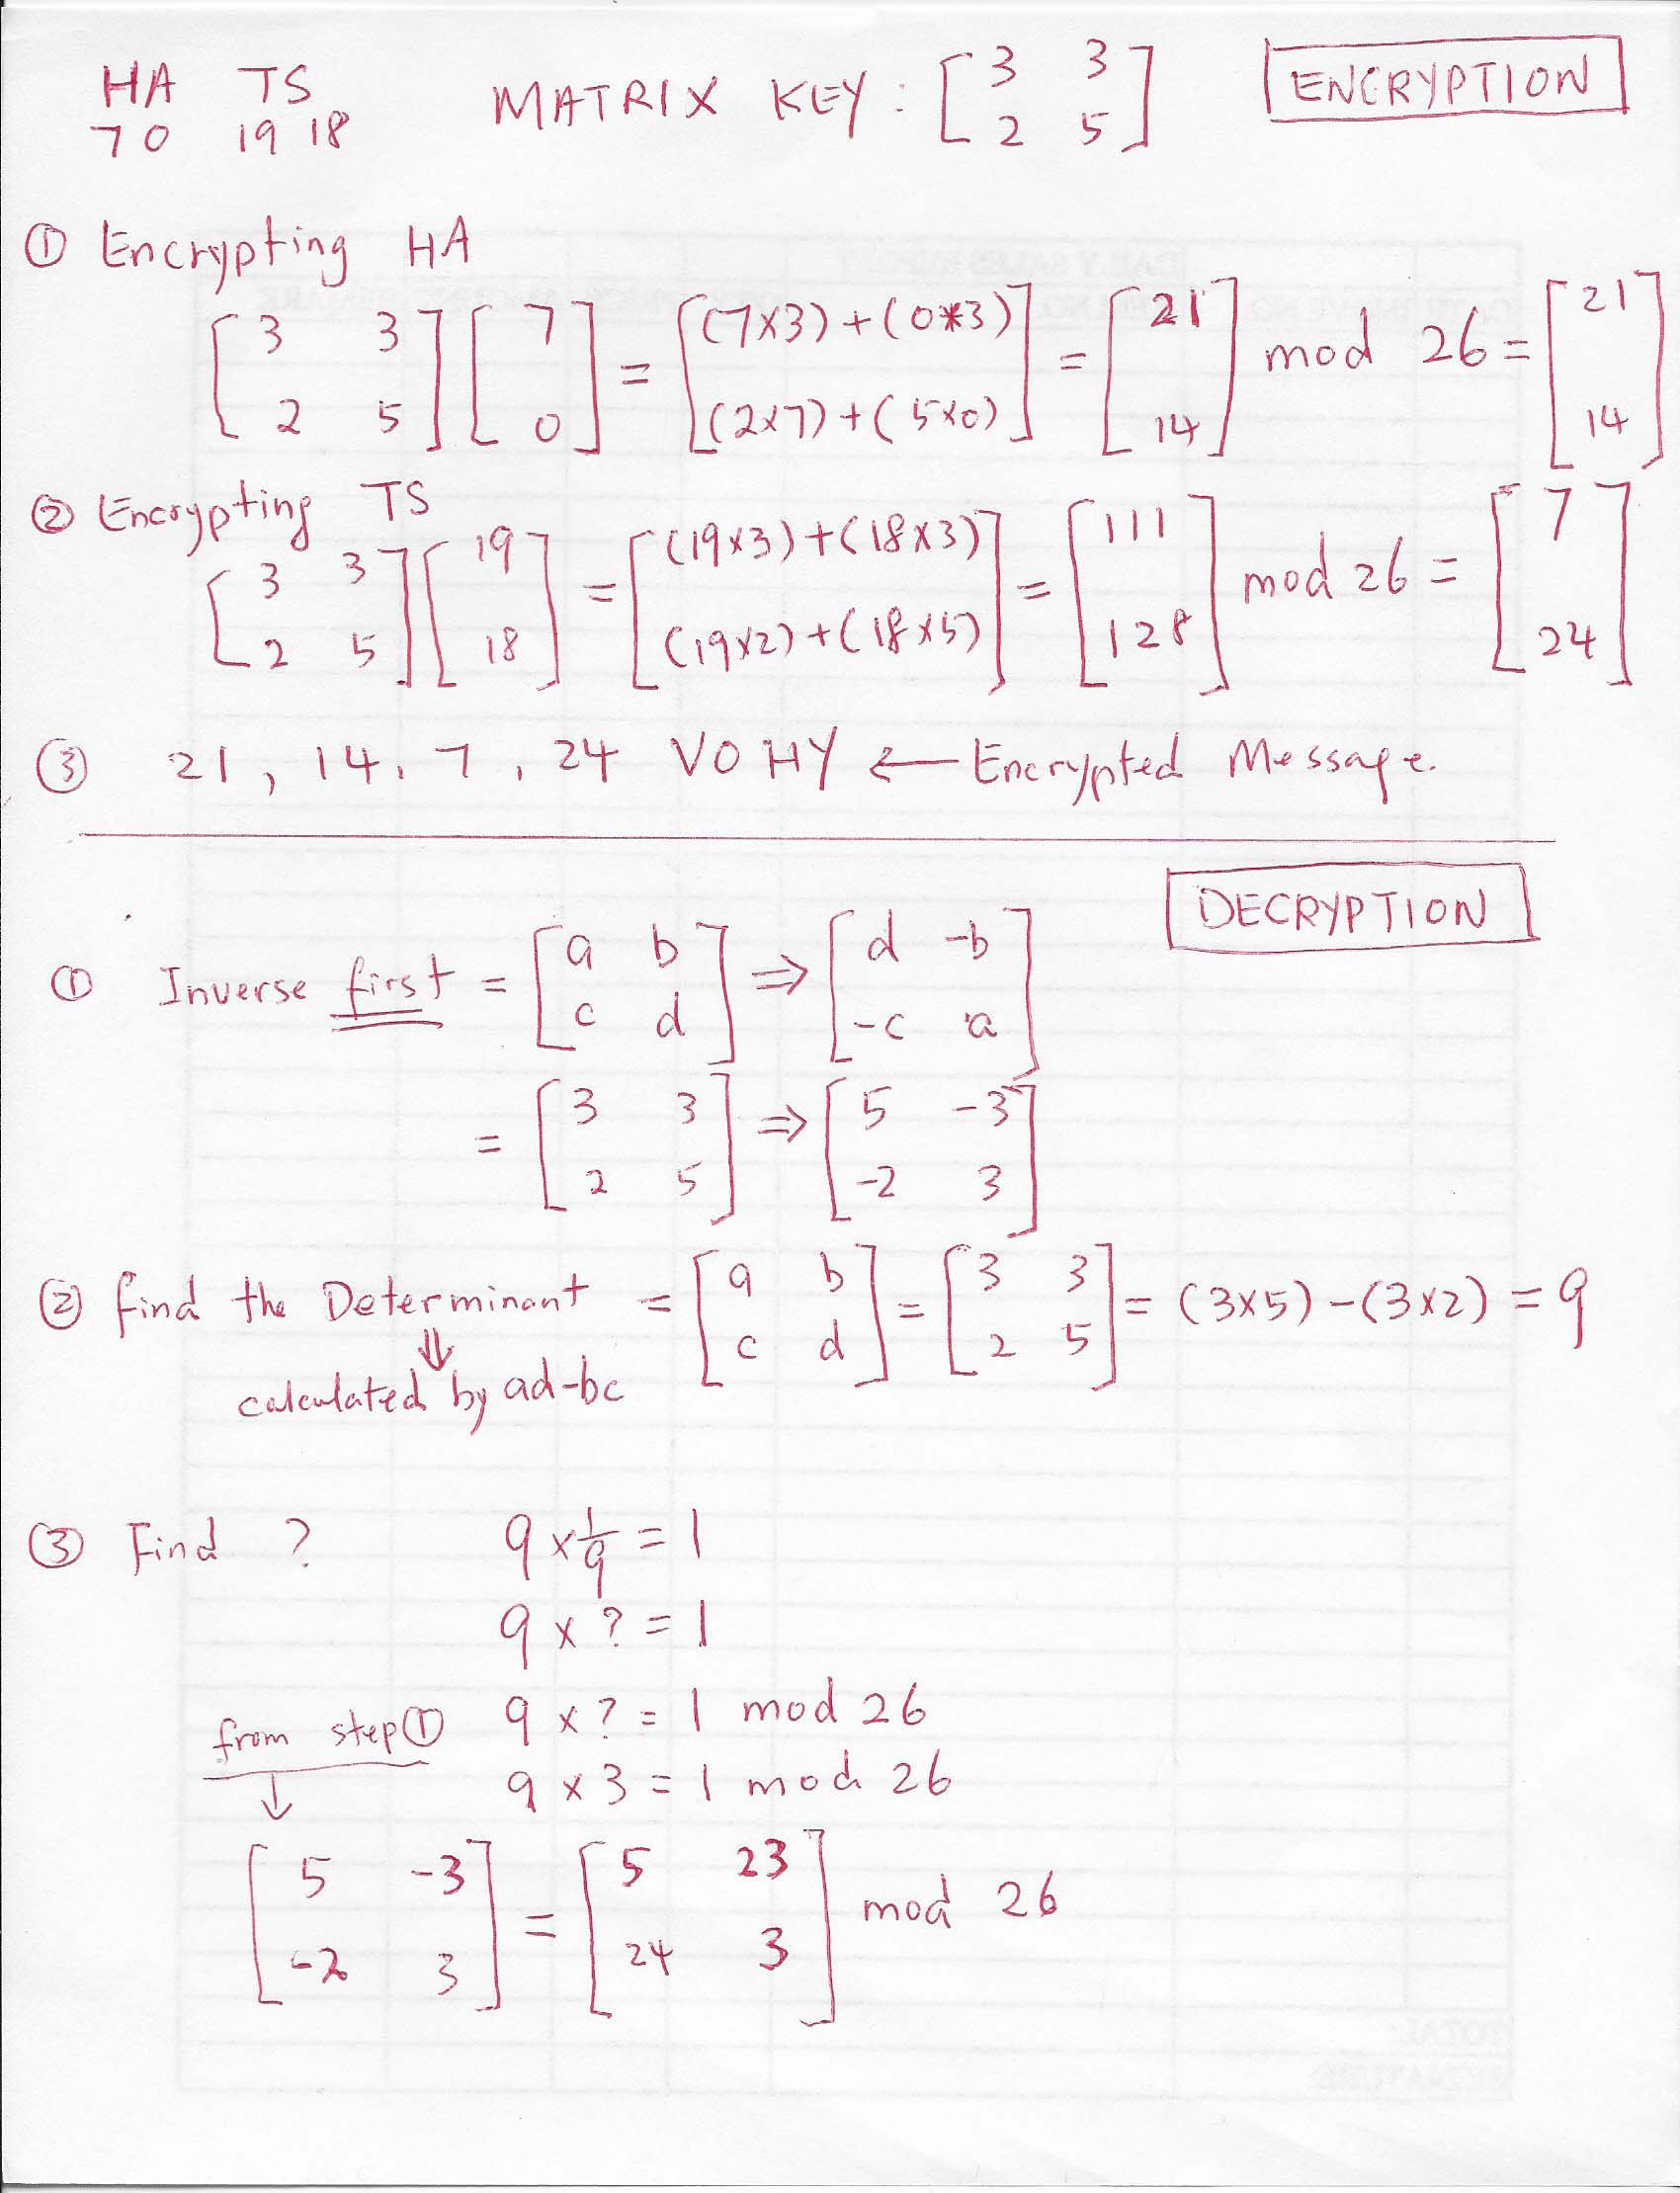 HA TS MATRIX KEY: [3 3; 2 5] ENCRYPTION
7 0 19 18
① Encrypting HA
[3 3; 2 5] [7; 0] = [(7x3)+(0*3); (2x7)+(5x0)] = [21; 14] mod 26 = [21; 14]
② Encrypting TS
[3 3; 2 5] [19; 18] = [(19x3)+(18x3); (19x2)+(18x5)] = [111; 128] mod 26 = [7; 24]
③ 21, 14, 7, 24 VOHY ← Encrypted Message.
DECRYPTION
① Inverse first = [a b; c d] ⇒ [d -b; -c a]
= [3 3; 2 5] ⇒ [5 -3; -2 3]
② find the Determinant = [a b; c d] = [3 3; 2 5] = (3x5)-(3x2) = 9
⇓
calculated by ad-bc
③ Find ? 9 x 1/9 = 1
9 x ? = 1
9 x ? = 1 mod 26
from step ①
9 x 3 = 1 mod 26
↓
[5 -3; -2 3] = [5 23; 24 3] mod 26
TOTAL: